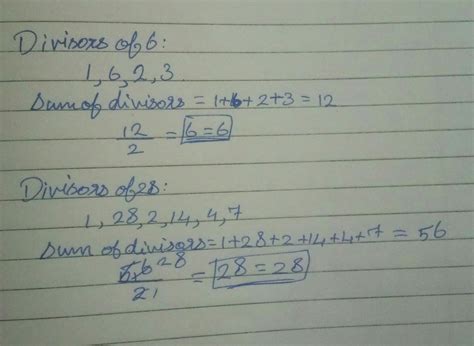 Divisors of 6:
1, 6, 2, 3.
Sum of divisors = 1+6+2+3 = 12
12/2 = 6 = 6
Divisors of 28:
1, 28, 2, 14, 4, 7
Sum of divisors = 1+28+2+14+4+7 = 56
56 28/2 1 = 28 = 28